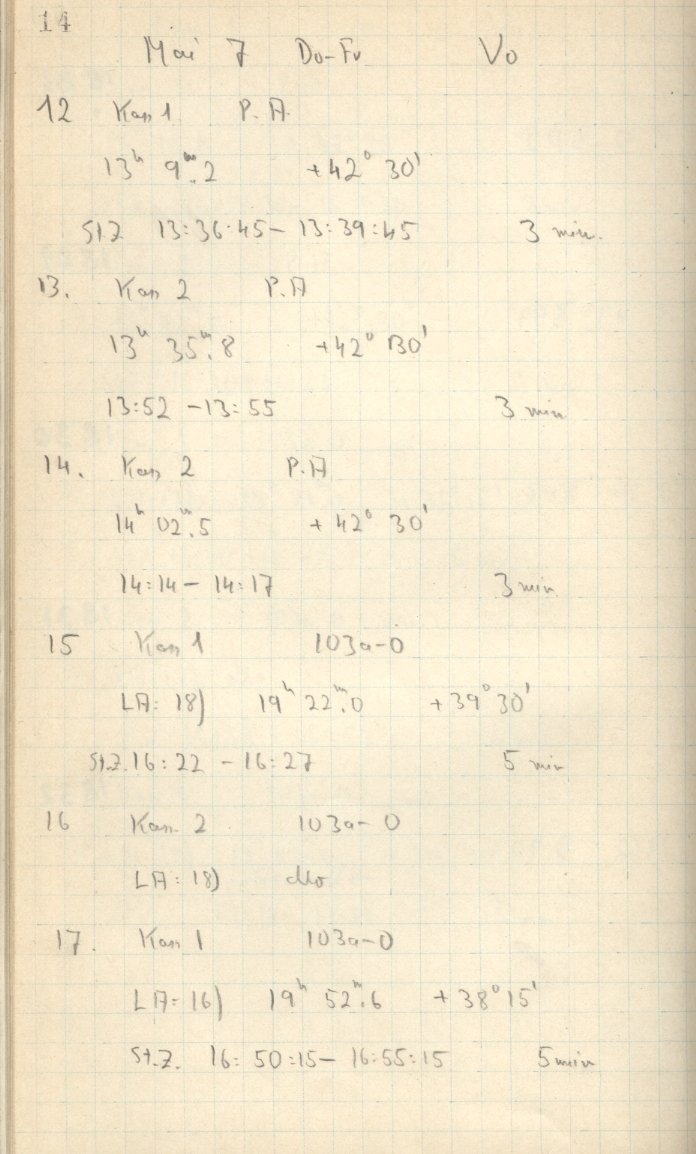 14
Mai 7 Do-Fr Vo
12 Kas 1 P.A
13ʰ 9ᵐ.2 +42° 30'
St.Z 13:36:45 – 13:39:45 3 min.
13. Kas 2 P.A
13ʰ 35ᵐ.8 +42° 30'
13:52 – 13:55 3 min
14. Kas 2 P.A
14ʰ 02ᵐ.5 +42° 30'
14:14 – 14:17 3 min
15 Kas 1 103a-O
LA: 18) 19ʰ 22ᵐ.0 +39° 30'
St.Z. 16:22 – 16:27 5 min
16 Kas. 2 103a-O
LA: 18) dto
17. Kas 1 103a-O
LA= 16) 19ʰ 52ᵐ.6 +38° 15'
St.Z. 16:50:15 – 16:55:15 5 min